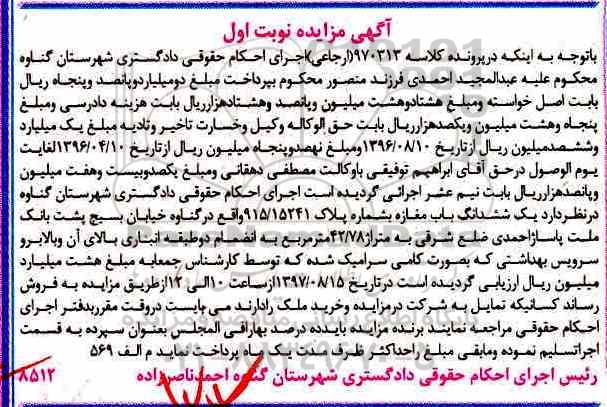 آگهی مزایده نوبت اول
باتوجه به اینکه درپرونده کلاسه ۹۷۰۳۱۳(ارجاعی)اجرای احکام حقوقی دادگستری شهرستان گناوه
محکوم علیه عبدالمجید احمدی فرزند منصور محکوم بپرداخت مبلغ دومیلیاردوپانصد وپنجاه ریال
بابت اصل خواسته ومبلغ هشتادوهشت میلیون وپانصد وهشتادهزارریال بابت هزینه دادرسی ومبلغ
پنجاه وهشت میلیون ویکصدهزارریال بابت حق الوکاله وکیل وخسارت تاخیر وتادیه مبلغ یک میلیارد
وششصدمیلیون ریال ازتاریخ ۱۳۹۶/۰۸/۱۰ومبلغ نهصدوپنجاه میلیون ریال ازتاریخ ۱۳۹۶/۰۴/۱۰لغایت
یوم الوصول درحق آقای ابراهیم توفیقی باوکالت مصطفی دهقانی ومبلغ یکصدوبیست وهفت میلیون
وپانصدهزارریال بابت نیم عشر اجرائی گردیده است اجرای احکام حقوقی دادگستری شهرستان گناوه
درنظردارد یک ششدانگ باب مغازه بشماره پلاک ۹۱۵/۱۵۲۴۱واقع درگناوه خیابان بسیج پشت بانک
ملت پاساژاحمدی ضلع شرقی به متراژ۴۲/۷۸مترمربع به انضمام دوطبقه انباری بالای آن وبالابرو
سرویس بهداشتی که بصورت کامی سرامیک شده که توسط کارشناس جمعابه مبلغ هشت میلیارد
میلیون ریال ارزیابی گردیده است درتاریخ ۱۳۹۷/۰۸/۱۵ازساعت ۱۰الی۱۲ازطریق مزایده به فروش
رساند کسانیکه تمایل به شرکت درمزایده وخرید ملک رادارند می بایست دروقت مقرربدفتر اجرای
احکام حقوقی مراجعه نمایند برنده مزایده بایدده درصد بهارافی المجلس بعنوان سپرده به قسمت
اجراتسلیم نموده ومابقی مبلغ راحداکثر ظرف مدت یک ماه پرداخت نماید م الف ۵۶۹
رئیس اجرای احکام حقوقی دادگستری شهرستان گناوه احمدناصرزاده
۸۵۱۲